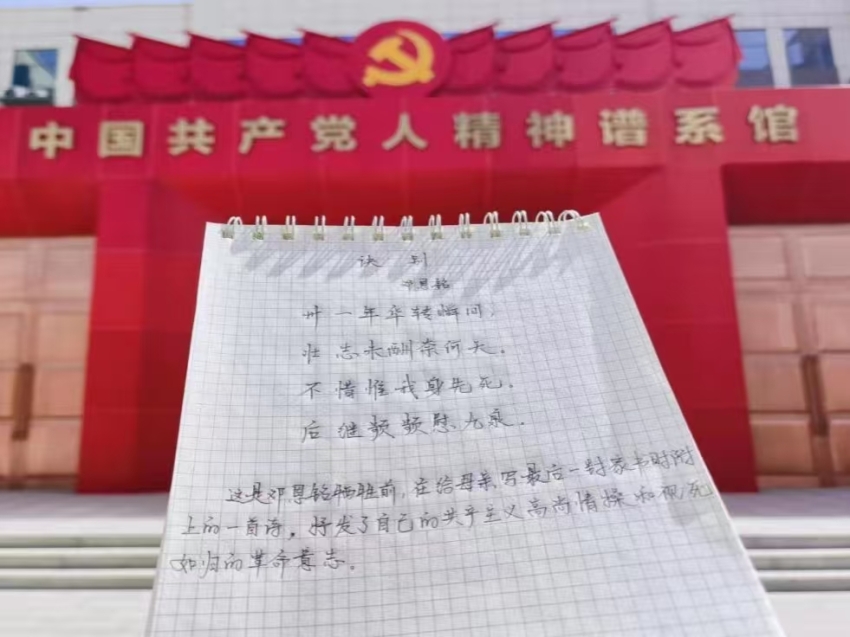 中国共产党人精神谱系馆
诀别
邓恩铭
卅一年华转瞬间,
壮志未酬奈何天.
不惜惟我身先死.
后继频频慰九泉.
这是邓恩铭牺牲前,在给母亲写最后一封家书时附
上的一首诗,抒发了自己的共产主义高尚情操和视死
如归的革命意志。